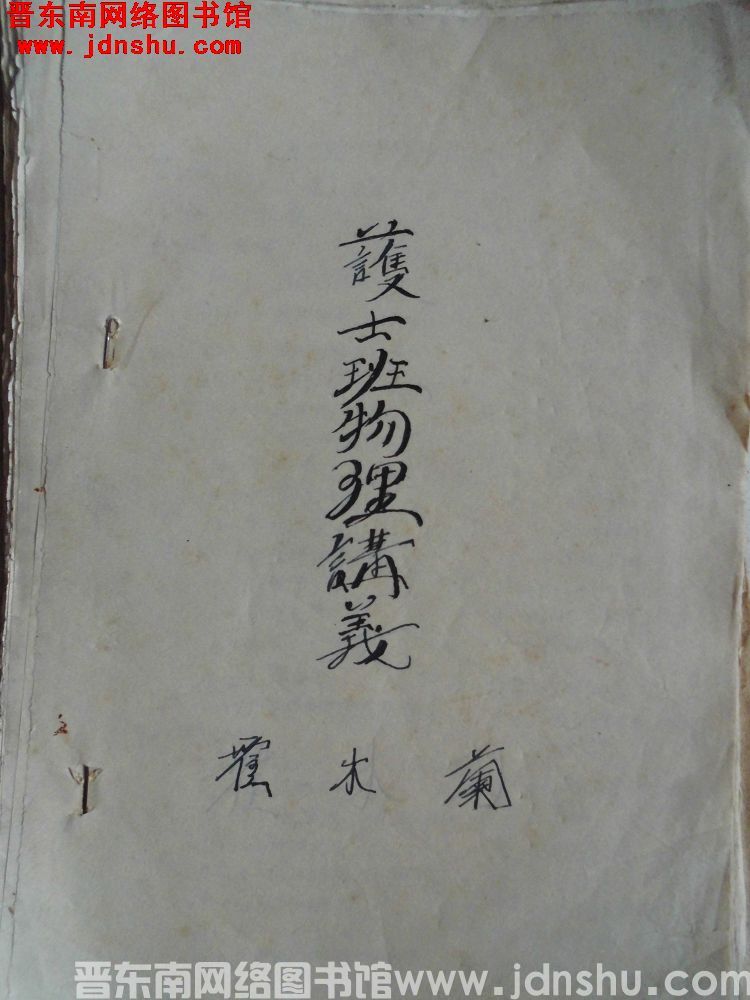 晋东南网络图书馆
www.jdnshu.com
護士班物理講義
木蘭
晋东南网络图书馆www.jdnshu.com